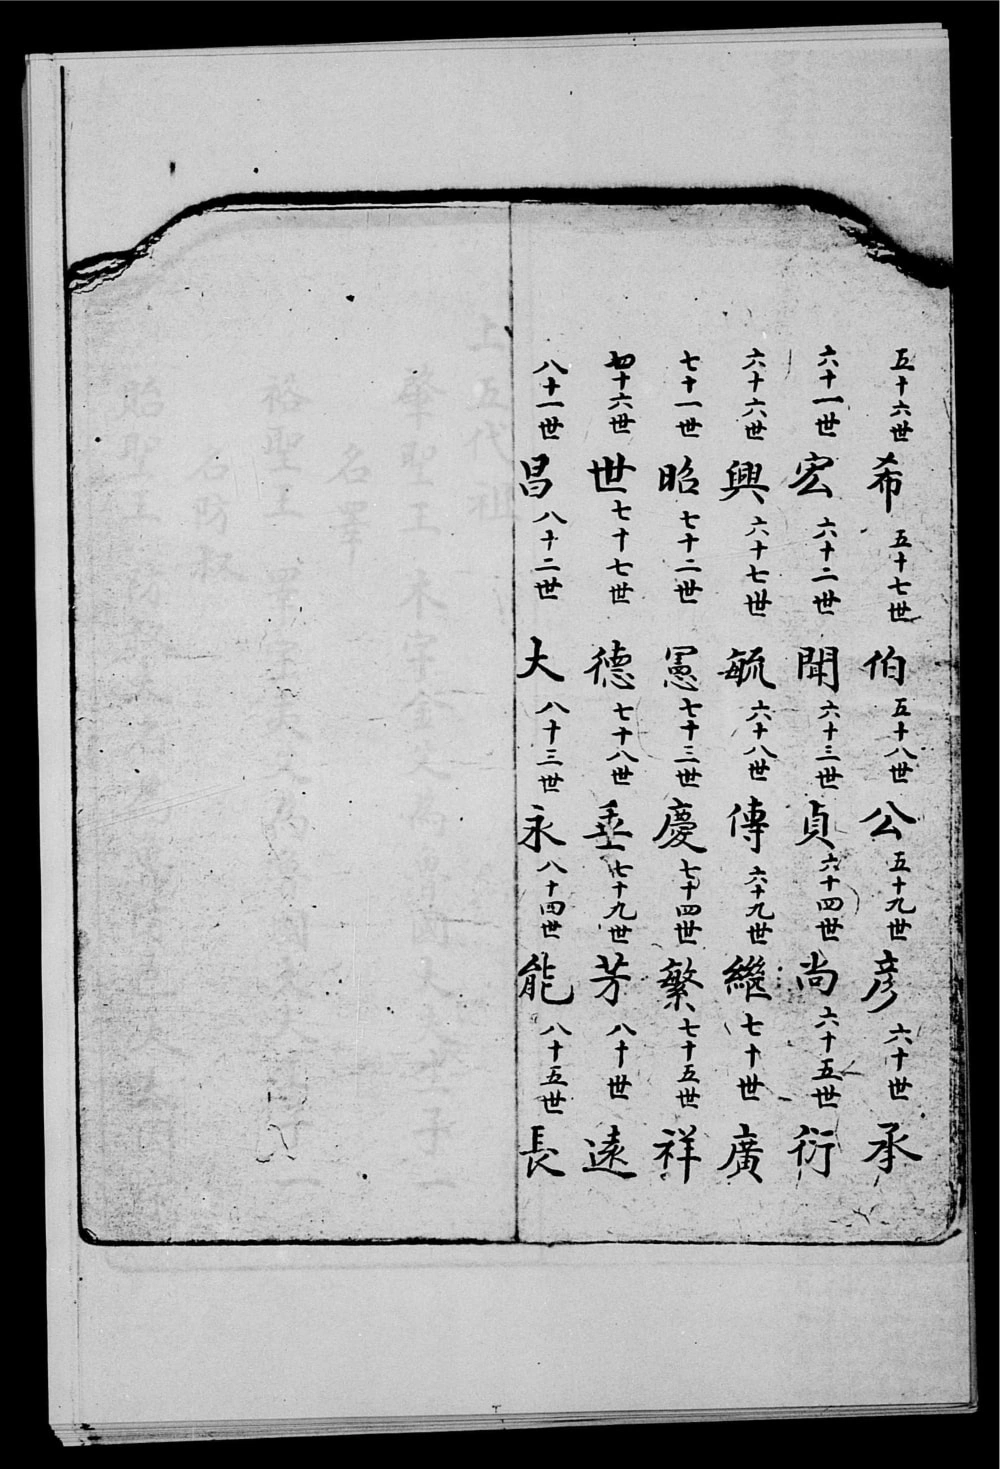 五十六世希五十七世伯五十八世公五十九世彦六十世承
六十一世宏六十二世聞六十三世貞六十四世尚六十五世衍
六十六世興六十七世毓六十八世傳六十九世繼七十世廣
七十一世昭七十二世憲七十三世慶七十四世繁七十五世祥
十六世世七十七世德七十八世垂七十九世芳八十世遠
八十一世昌八十二世大八十三世永八十四世能八十五世長
上五代祖
華聖王木字金父為
名睪
裕聖王睪字夷父為
名防叔
貽聖王防叔